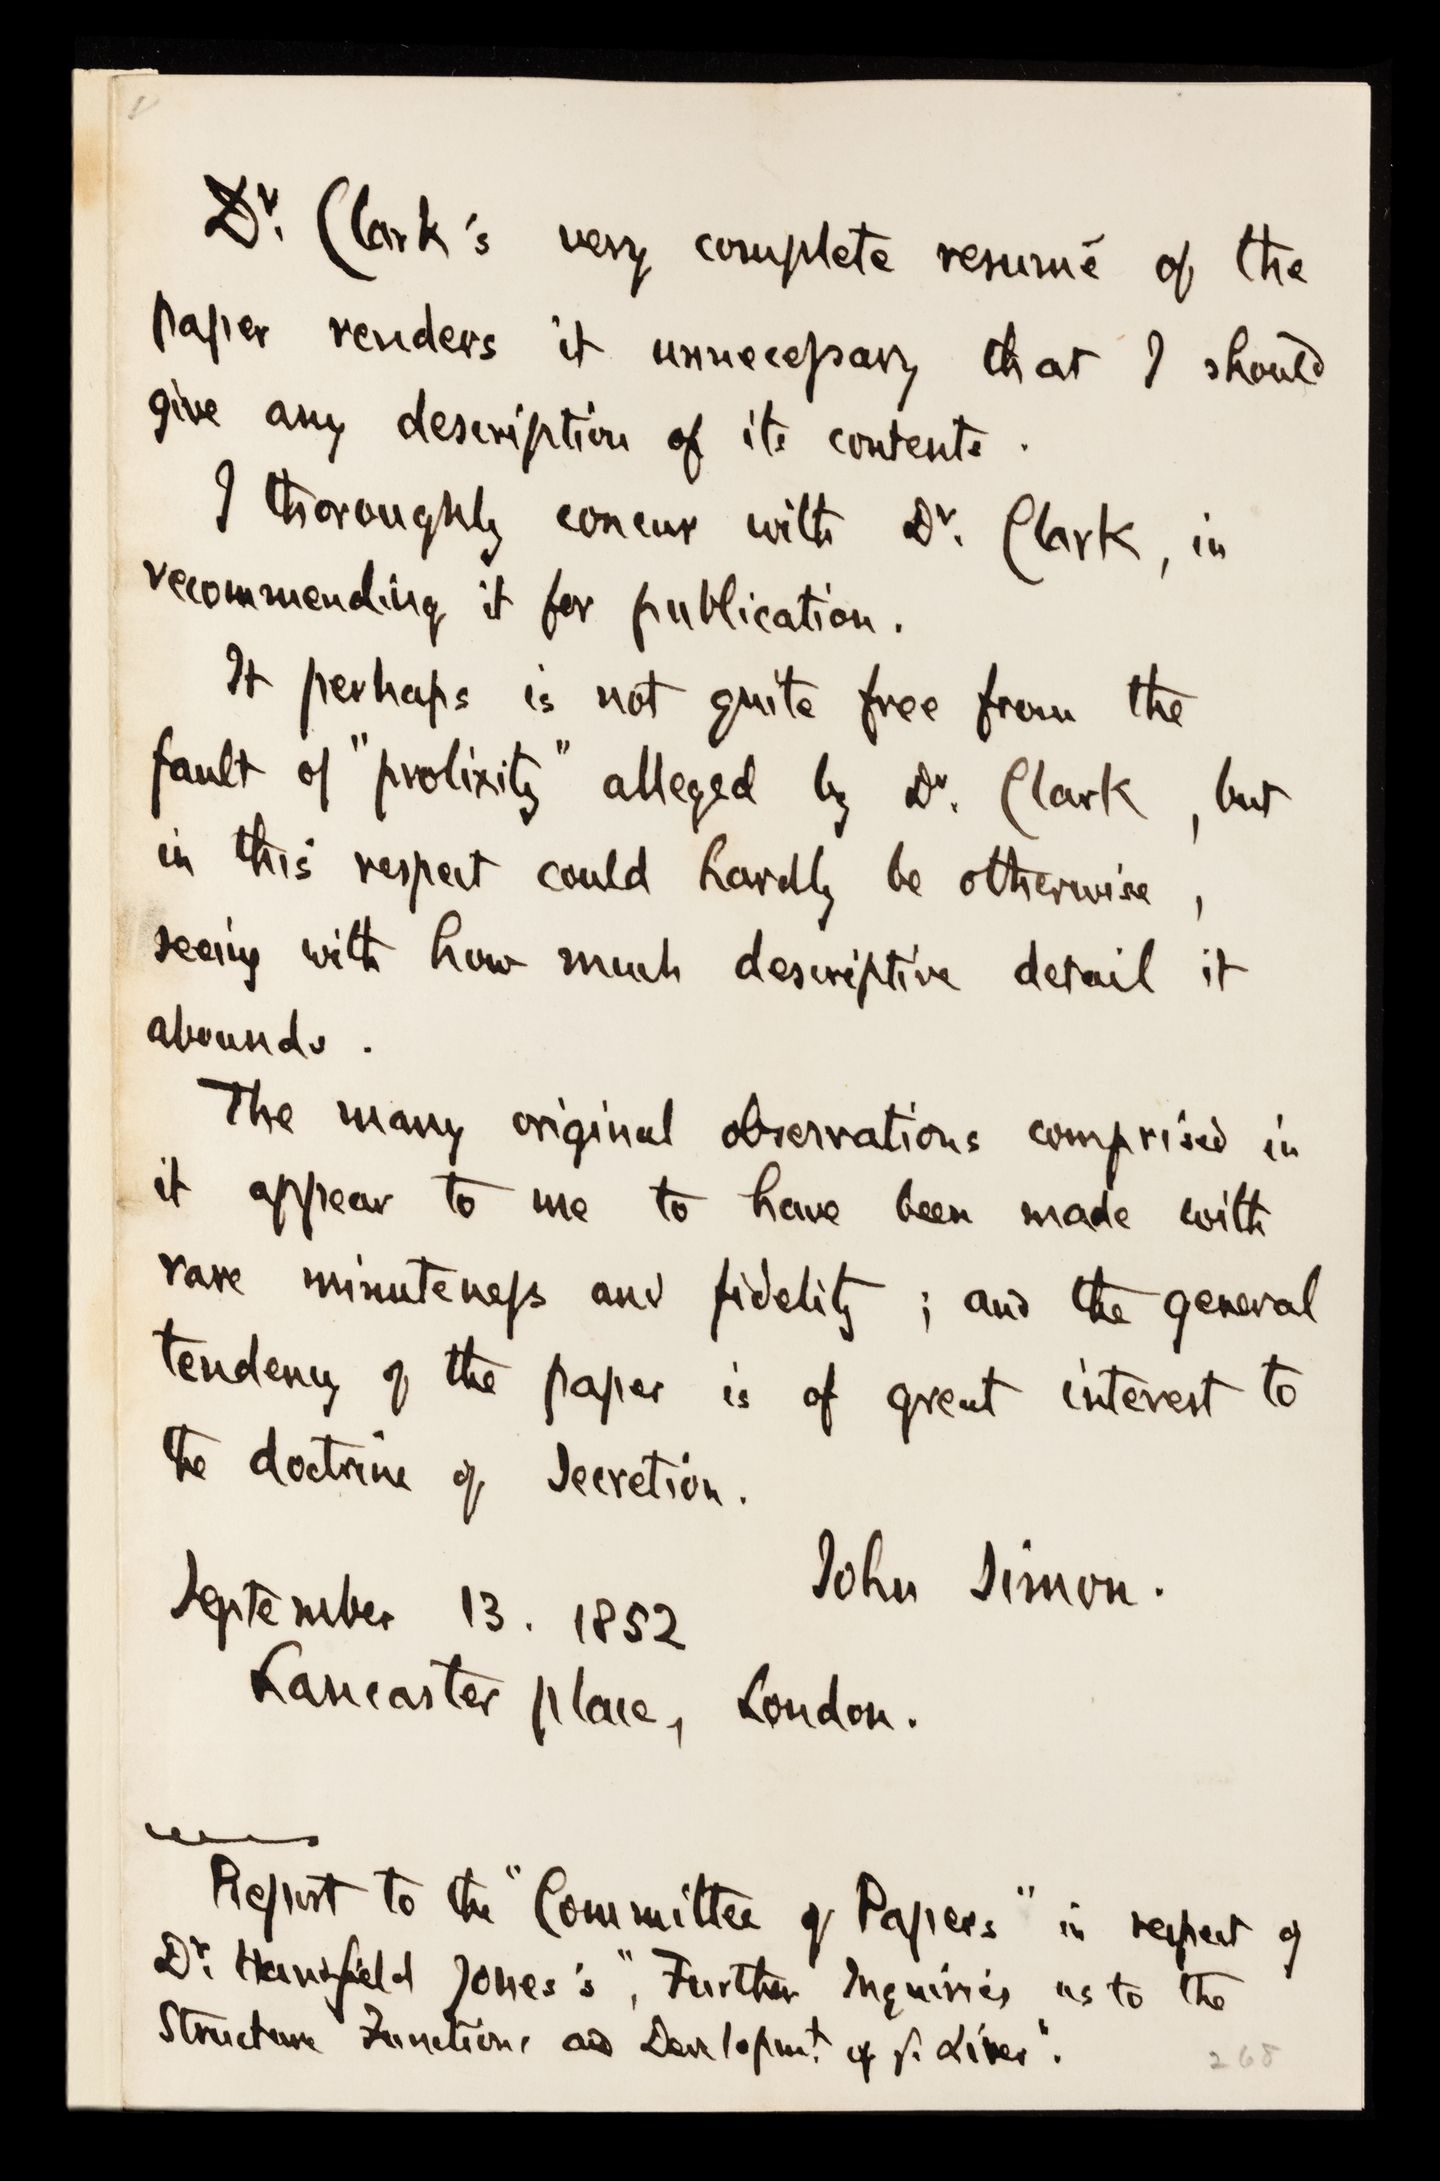 Dr. Clark's very complete resumé of the
paper renders it unnecessary that I should
give any description of its contents.
I thoroughly concur with Dr. Clark, in
recommending it for publication.
It perhaps is not quite free from the
fault of "prolixity" alleged by Dr. Clark, but
in this respect could hardly be otherwise,
seeing with how much descriptive detail it
abounds.
The many original observations comprised in
it appear to me to have been made with
rare minuteness and fidelity; and the general
tendency of the paper is of great interest to
the doctrine of Secretion.
John Simon.
September 13. 1852
Lancaster place, London.
Report to the "Committee of Papers" in respect of
Dr. Handfield Jones's ", Further Inquiries as to the
Structure Functions and Developmt. of ye. Liver".
268